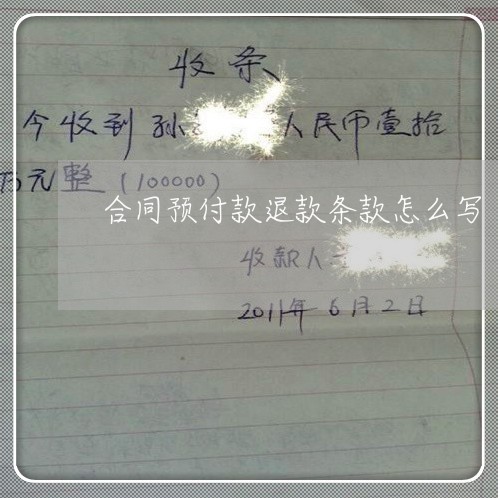 收条
今收到孙 人民币壹拾
万元整（100000）
合同预付款退款条款怎么写
收款人
2011年6月2日